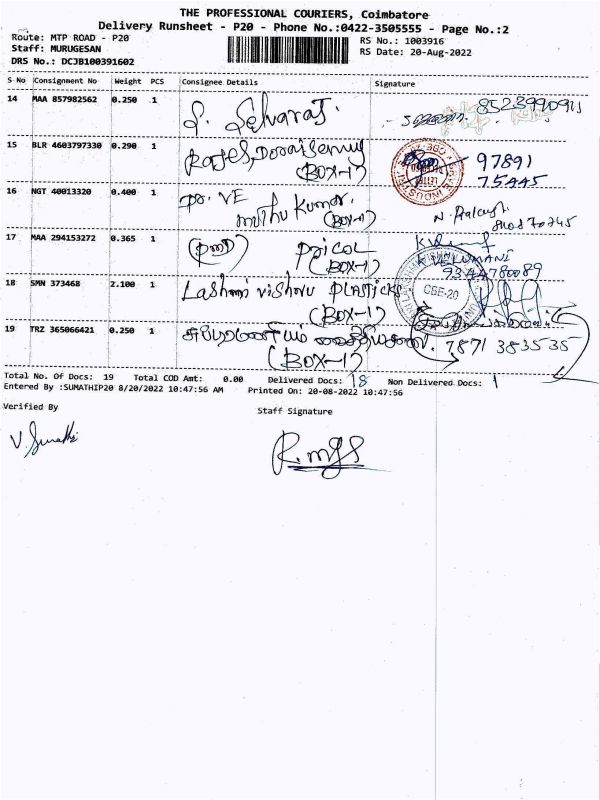 THE PROFESSIONAL COURIERS, Coimbatore
Delivery Runsheet - P20 - Phone No.:0422-3505555 - Page No.:2
Route: MTP ROAD - P20
RS No.: 1003916
Staff: MURUGESAN
RS Date: 20-Aug-2022
DRS No.: DCJB100391602
S No Consignment No Weight PCS Consignee Details Signature
14 MAA 857982562 0.250 1 S. Selvaraj. 8523990911
15 BLR 4603797330 0.290 1 Rajes Doraisamy 97891
(BOX-1) 75445
16 NGT 40013320 0.400 1 Dr. VE
muthu Kumar.
(BOX-1)
17 MAA 294153272 0.365 1 (PMD) PRICOL
(BOX-1) K VELUMANI
9344780089
18 SMN 373468 2.100 1 Lashmi vishnu PLASTICKS
(BOX-1) CBE-20
19 TRZ 365066421 0.250 1 7871 383535
(BOX-1)
Total No. Of Docs: 19 Total COD Amt: 0.00 Delivered Docs: 18 Non Delivered Docs: 1
Entered By :SUMATHIP20 8/20/2022 10:47:56 AM Printed On: 20-08-2022 10:47:56
Verified By
Staff Signature
V. Sumathi
R. mgs